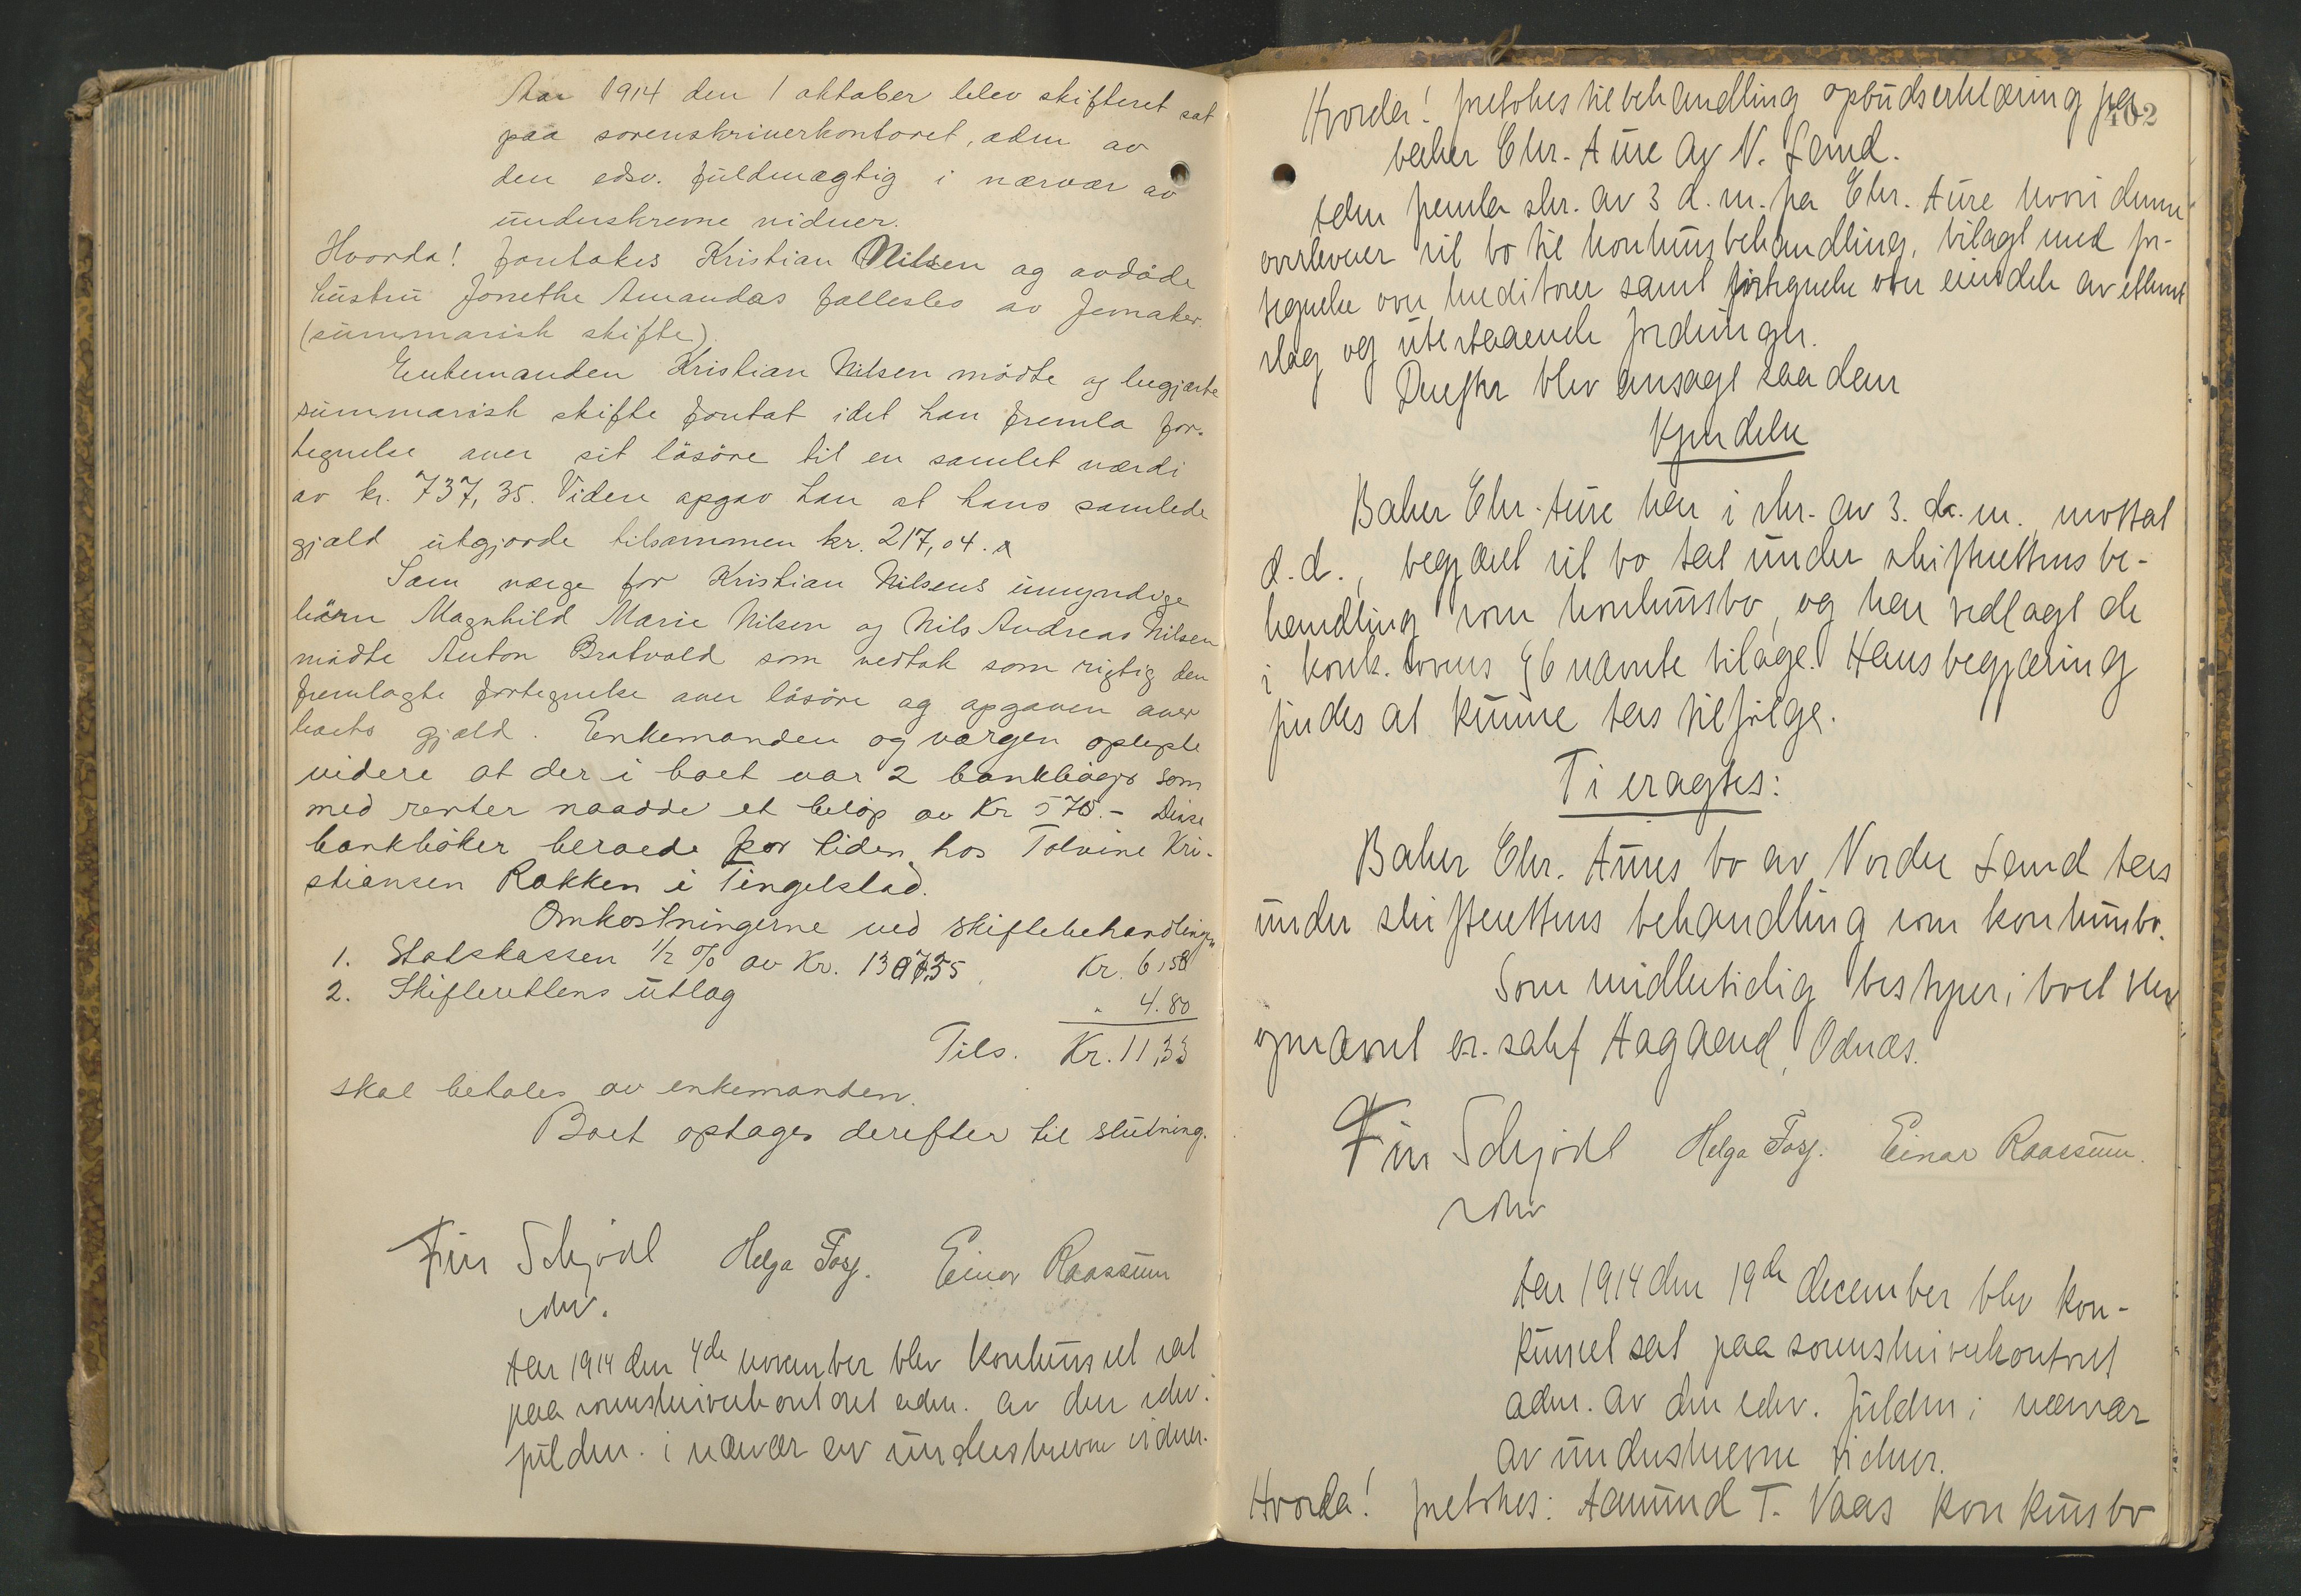 Aar 1914 den 1 oktober blev skifteret sat
paa sorenskriverkontoret, adm av
den edsv. fuldmægtig i nærvær av
underskrevne vidner.
Hvorda! foretokes Kristian Nilsen og avdöde
hustru Jonethe Amandas fællesbo av Jevnaker.
(summarisk skifte).
Enkemanden Kristian Nilsen mödte og begjærte
summarisk skifte foretat idet han fremla for-
tegnelse over sit lösöre til en samlet værdi
av kr. 737,35. Videre opgav han at hans samlede
gjæld utgjorde tilsammen kr. 217,04.
Som verge for Kristian Nilsens umyndige
börn Magnhild Marie Nilsen og Nils Andreas Nilsen
mödte Anton Bratvold som vedtok som rigtig den
fremlagte fortegnelse over lösöre og opgaven over
boets gjæld. Enkemanden og værgen oplyste
videre at der i boet var 2 bankböger som
med renter naadde et belöp av Kr 570.- Disse
bankböker beroede for tiden hos Tolvine Kri-
stiansen Rokken i Tingelstad.
Omkostningerne ved skiftebehandlingen
1. Statskassen 1/2 % av Kr. 1307,35 Kr. 6,53
2. Skifterettens utlag " 4.80
Tils. Kr. 11,33
skal betales av enkemanden.
Boet optages derefter til slutning.
Finn Schjödt Helga Fosg. Einar Raassum
edsv.
Aar 1914 den 4de november blev konkursret sat
paa sorenskriverkontoret adm. av den edsv.
fuldm. i nærvær av underskrevne vidner.
402
Hvorda! foretokes til behandling opbudserklæring fra
baker Chr. Aure av N. Land.
Adm fremla skr. av 3 d. m. fra Chr. Aure hvori denne
overleverer sit bo til konkursbehandling, bilagt med for-
tegnelse over kreditorer samt fortegnelse over eiendele av ethvert
slag og utestaaende fordringer.
Derefter blev avsagt saadan
Kjendelse
Baker Chr. Aure har i skr. av 3. d. m. mottat
d. d., begjært sit bo tat under skifterettens be-
handling som konkursbo, og har vedlagt de
i konk. lovens § 6 nævnte bilage. Hans begjæring
findes at kunne tas tilfölge.
Ti eragtes:
Baker Chr. Aures bo av Nordre Land tas
under skifterettens behandling som konkursbo.
Som midlertidig bestyrer i boet blev
opnævnt o.r. sakf Aagaard, Odnæs.
Finn Schjödt Helga Fosg. Einar Raassum.
edsv
Aar 1914 den 19de december blev kon-
kursret sat paa sorenskriverkontoret
adm. av den edsv. fuldm i nærvær
av underskrevne vidner.
Hvorda! foretokes: Aamund T. Vaas konkursbo